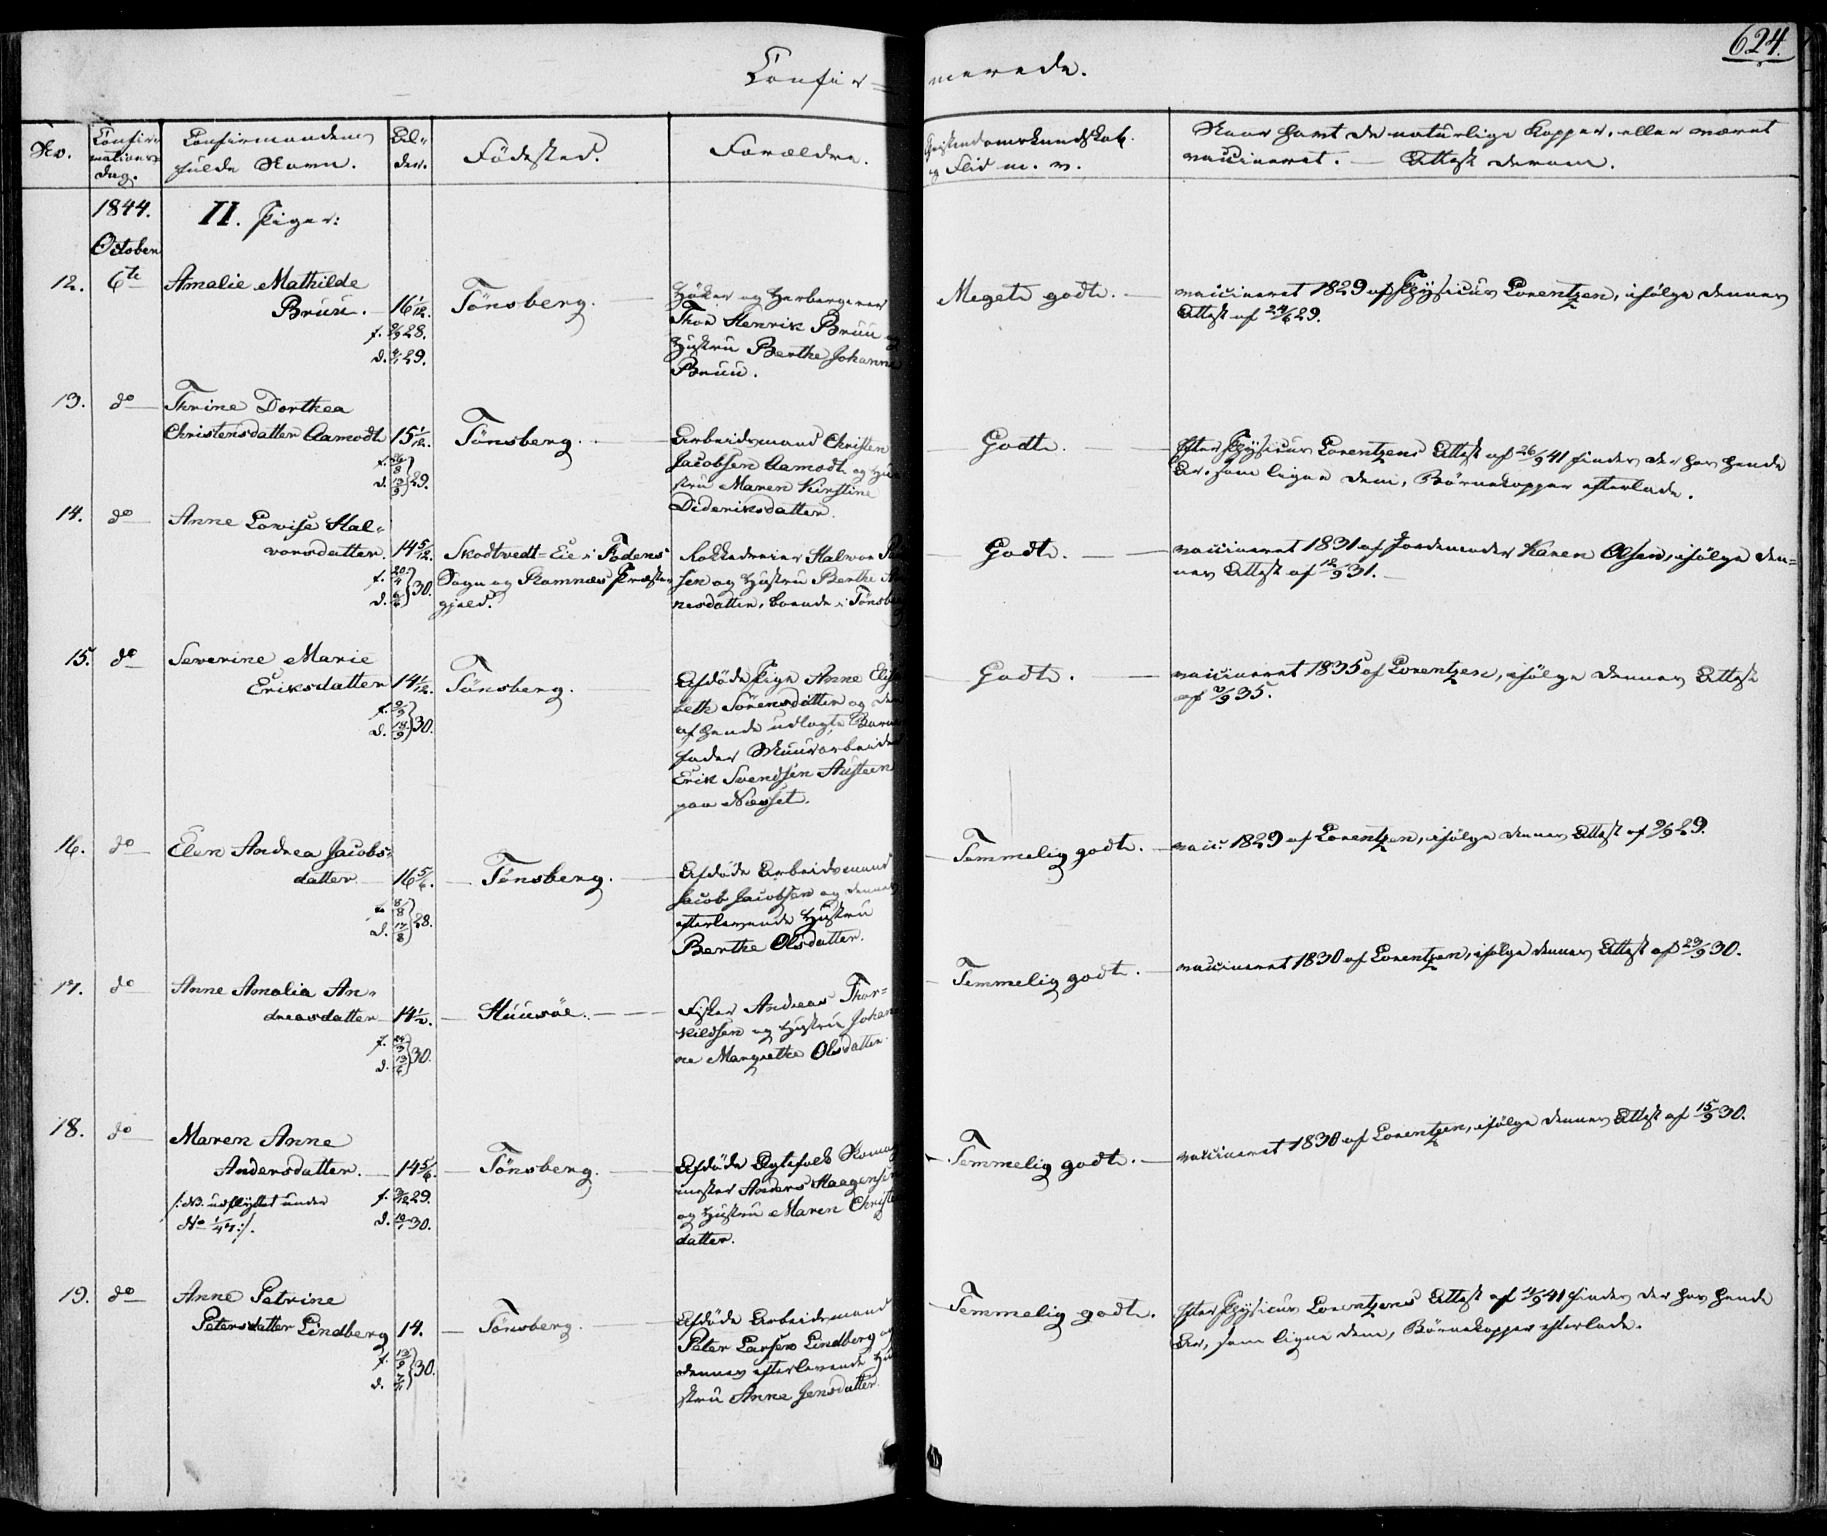 624.
Confir=merede.
No. Confirmations dag. Confirmandens fulde Navn. Al-der. Fødested. Forældre. Christendomskundskab. og Flid m. v. Naar havt de naturlige Kopper, eller været vaccineret. — Attest derom.
1844. II. Piger:
October
12. 6te Amalie Mathilde
Bruu. 16 1/12. Tönsberg. Höker og Herbergerer
Thor Henrik Bruu og
Hustru Berthe Johanne
Bruu.
f. 28.
d. 29.
Meget godt. — vaccineret 1829 af Physicus Lorentzen, ifølge dennes
Attest af 29.
13. do Thrine Dorthea
Christensdatter Aamodt 15 1/12. Tönsberg. Arbeidsmand Christen
Jacobsen Aamodt og Hu-
stru Maren Kirstine
Dideriksdatter.
f. 26/8
d. 13/9 29.
Godt. Efter Physicus Lorentzens Attest af 26/9 41 findes der hos hende
Ar, som ligne dem, Børnekopper efterlade.
14. do Anne Lovise Hal-
vorsdatter. 14 5/12. Skodtvedt-Eie i Fodens
Sogn og Ramnæs Præste-
gjeld.
f. 20/4
d. 6/6 30.
Rokkedreier Halvor
sen og Hustru Berthe
nesdatter, boende i Tönsberg
Godt. — vaccineret 1831 af Jordemoder Karen Olsen, ifølge den-
nes Attest af 12/9 31.
15. do Severine Marie
Eriksdatter 14 1/12. Tönsberg.
f. 2/9
d. 18/9 30.
Afdøde Pige Anne Elisa
beth Sörensdatter og den
af hende udlagte Barne
fader Muurarbeider
Erik Svendsen Austeen
paa Næsset.
Godt. — vaccineret 1835 af Lorentzen, ifølge dennes Attest
af 35.
16. do Elen Andrea Jacobs-
datter. 16 5/6. Tönsberg.
f. 8/8
d. 17/8 28.
Afdøde Arbeidsmand
Jacob Jacobsen og dennes
efterlevende Hustru
Berthe Olsdatter.
Temmelig godt. — vacc. 1829 af Lorentzen, ifølge dennes Attest af 9/9 29.
17. do Anne Amalia An-
dreasdatter 14 1/2. Huusöe.
f.
d. 13/6 30.
Fisker Andreas Thor-
kildsen og Hustru Johan
ne Margrethe Olsdatter.
Temmelig godt. — vaccineret 1830 af Lorentzen, ifølge dennes Attest af 29/9 30.
18. do Maren Anne
Andersdatter. 14 5/6. Tönsberg.
/: NB. udflyttet under
No 1/47 :/.
f. /12 29.
d. 10/1 30.
Afdøde Ægtefolk Skomag
mester Anders Haagensen
og Hustru Maren Christe
datter.
Temmelig godt. — vaccineret 1830 af Lorentzen, ifølge dennes Attest af 15/9 30.
19. do Anne Petrine
Petersdatter Lindberg 14. Tönsberg.
f. 13/9
d. 30.
Afdøde Arbeidsmand
Peter Larsen Lindberg og
dennes efterlevende Hu
stru Anne Jensdatter.
Temmelig godt. Efter Physicus Lorentzens Attest af 41 findes der hos hende
Ar, som ligne dem, Børnekopper efterlade.